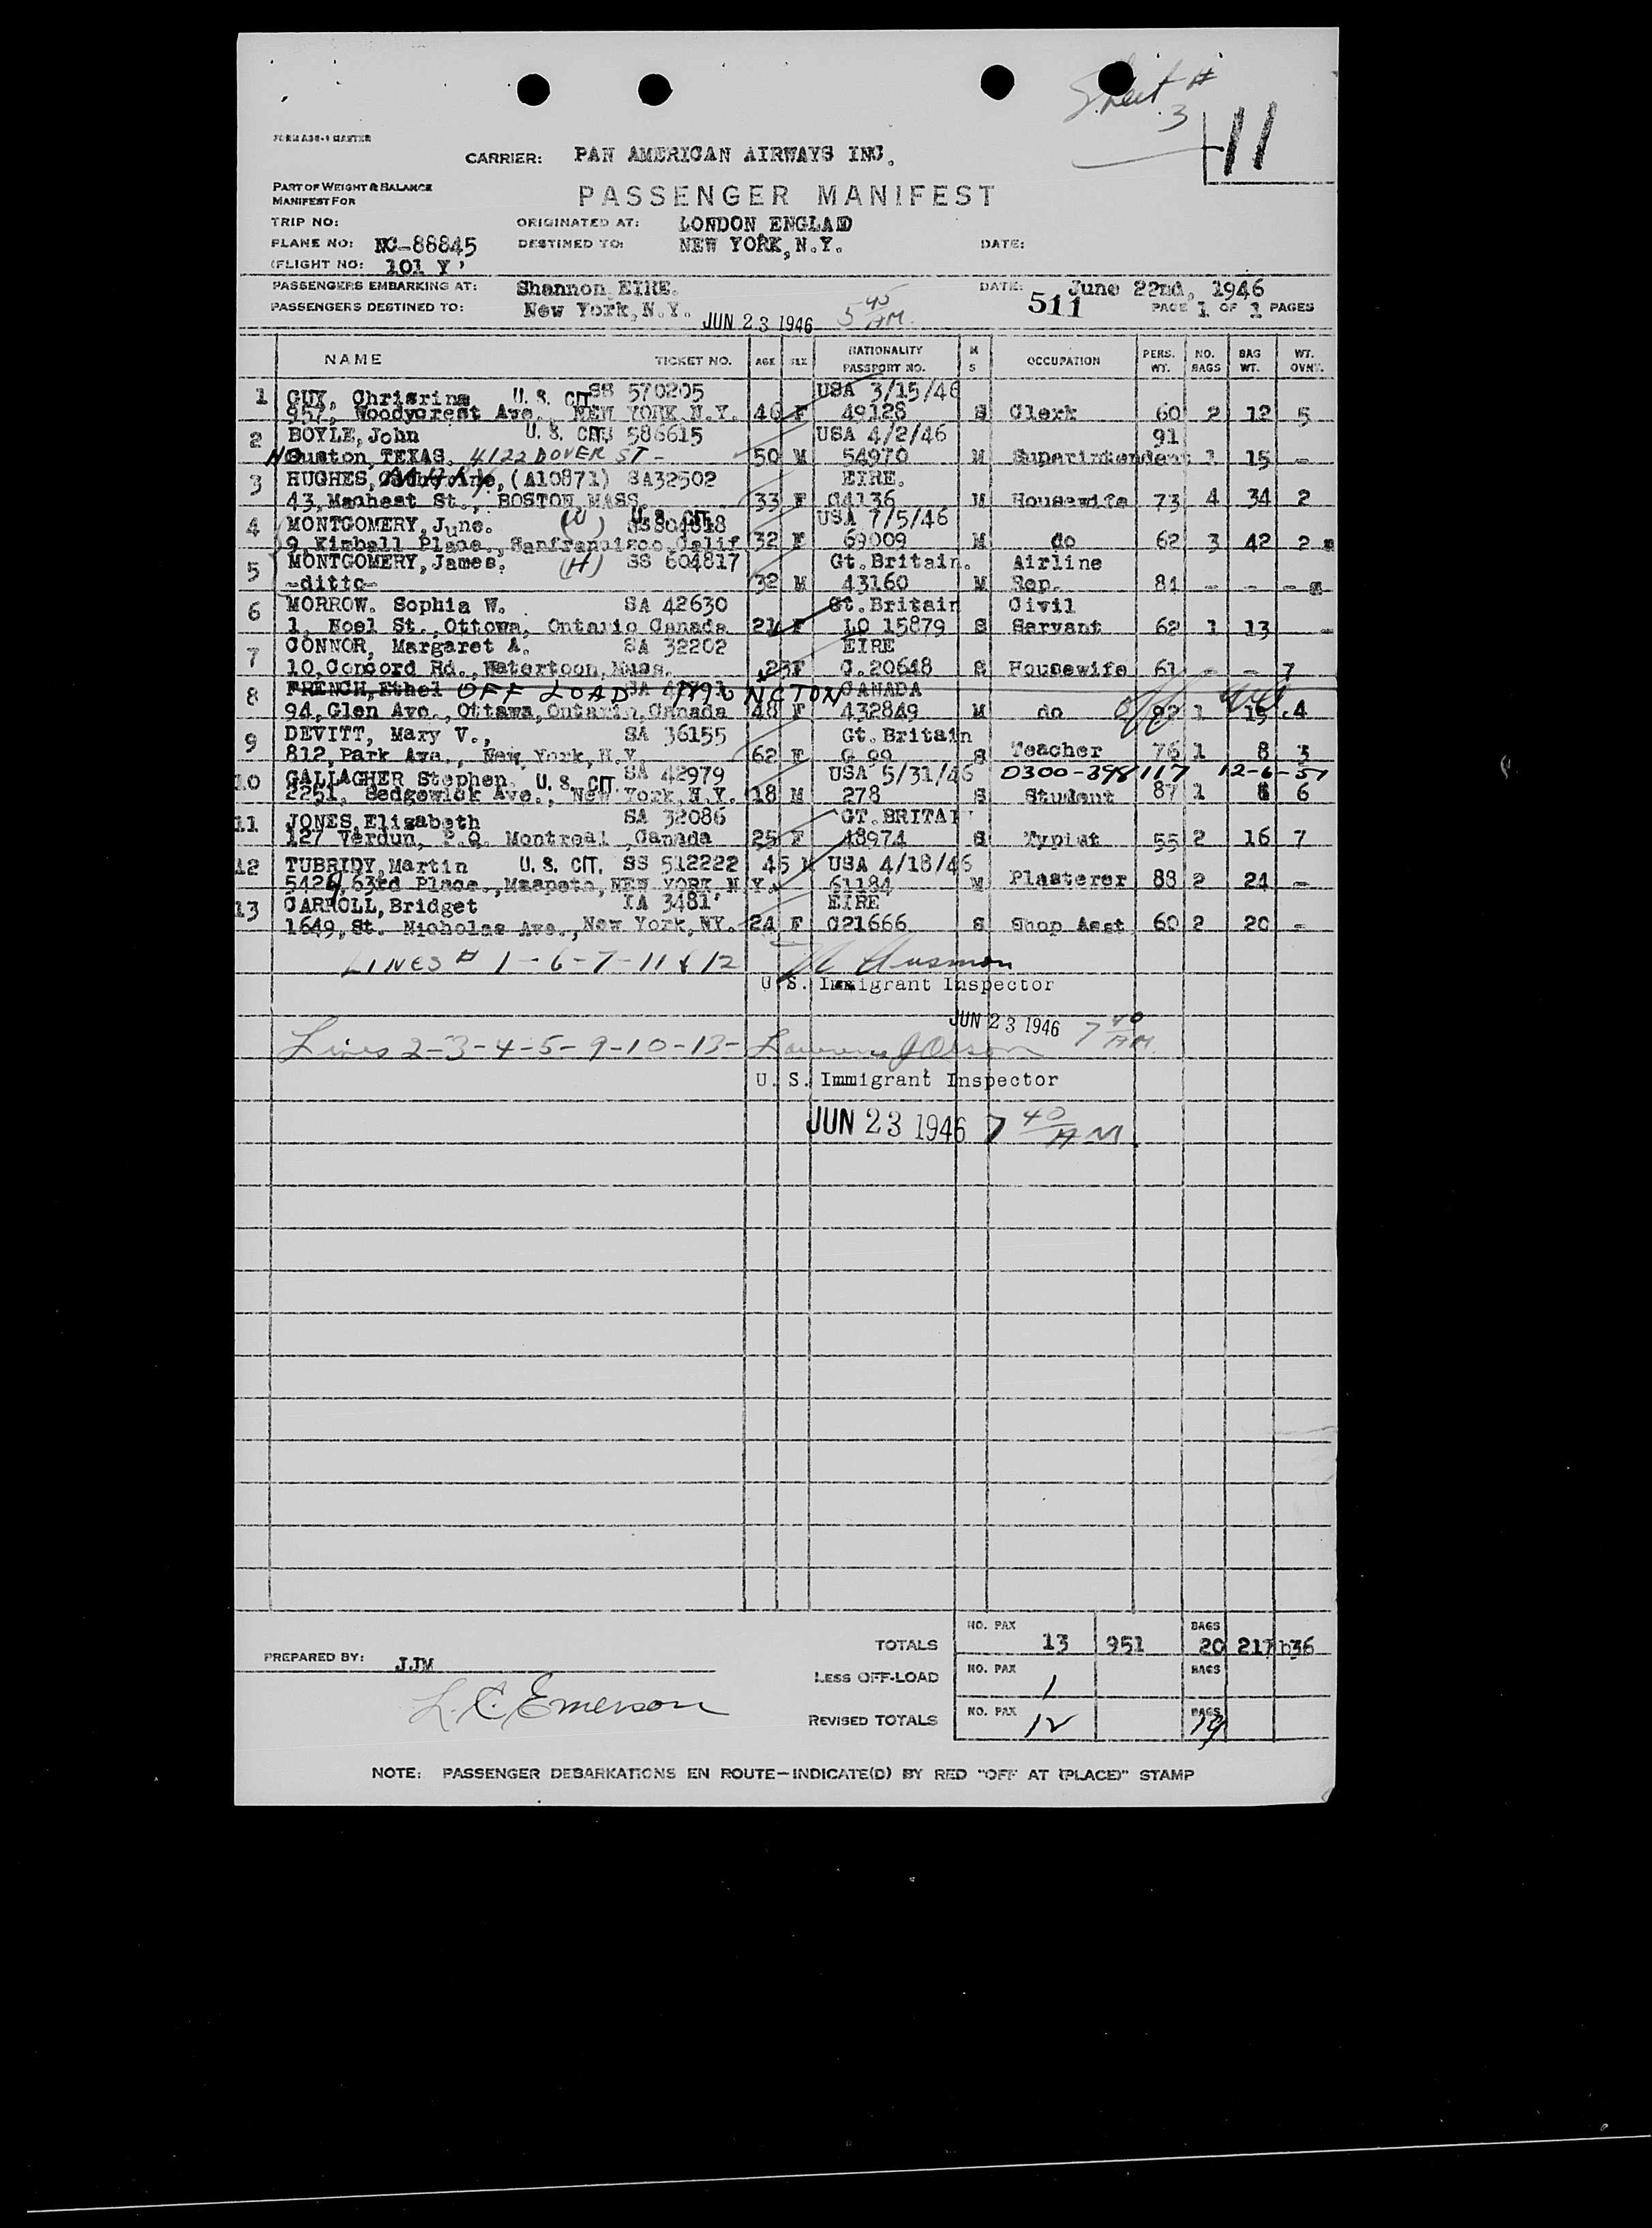 Sheet #
3
11
FORM A38-4 MASTER
CARRIER: PAN AMERICAN AIRWAYS INC.
PART OF WEIGHT & BALANCE
MANIFEST FOR
PASSENGER MANIFEST
TRIP NO: ORIGINATED AT: LONDON ENGLAD
PLANE NO: NC-88845 DESTINED TO: NEW YORK, N.Y. DATE:
FLIGHT NO: 101 Y
PASSENGERS EMBARKING AT: Shannon, EIRE. DATE: June 22nd, 1946
PASSENGERS DESTINED TO: New York, N.Y. JUN 23 1946 5 45 AM. 511 PAGE 1 OF 1 PAGES
NAME TICKET NO. AGE SEX NATIONALITY PASSPORT NO. M S OCCUPATION PERS. WT. NO. BAGS BAG WT. WT. OVNT.
1 GUY, Chrisrina U. S. CIT SS 570205 USA 3/15/46
957, Woodycrest Ave., NEW YORK, N.Y. 40 F 49128 S Clerk 60 2 12 5
2 BOYLE, John U. S. CIT. 586615 USA 4/2/46 91
HOuston, TEXAS. 4122 DOVER ST - 50 M 54970 M Superintendent 1 15 -
3 HUGHES, (A10871) SA32502 EIRE.
43, Macheat St., BOSTON, MASS. 33 F C4136 M Housewife 73 4 34 2
4 MONTGOMERY, June. (W) U. S. CIT. SS804818 USA 7/5/46
9, Kimball Place., Sanfrancisco, Calif 32 F 69009 M do 62 3 42 2
5 MONTGOMERY, James. (H) SS 604817 Gt. Britain. Airline
-ditto- 32 M 43160 M Rep. 81 - - -
6 MORROW. Sophia W. SA 42630 Gt. Britain Civil
1, Noel St., Ottowa, Ontario Canada 21 F LO 15879 S Servant 62 1 13 -
7 CONNOR, Margaret A. SA 32202 EIRE
10, Concord Rd., Watertoon, Mass. 23 F C.20648 S Housewife 61 - - 7
8 FRENCH, Ethel OFF LOAD SA MONCTON CANADA
94, Glen Ave., Ottawa, Ontario, Canada 48 F 432849 M do 92 1 15 .4
9 DEVITT, Mary V., SA 36155 Gt. Britain
812, Park Ave., New York, N.Y. 62 F G 99 S Teacher 76 1 8 3
10 GALLAGHER Stephen U. S. CIT. SA 42979 USA 5/31/46 0300-398117 12-6-51
2251, Sedgewick Ave., New York, N.Y. 18 M 278 S Student 87 1 6 6
11 JONES, Elizabeth SA 32086 GT. BRITAI
127 Verdun, P.Q. Montreal, Canada 25 F 48974 S Typist 55 2 16 7
12 TUBRIDY, Martin U. S. CIT. SS 512222 45 USA 4/18/46
5424, 63rd Place., Maspeth, NEW YORK N.Y. 61184 M Plasterer 88 2 24 -
13 CARROLL, Bridget IA 3481 EIRE
1649, St. Nicholas Ave., New York, NY. 24 F C21666 S Shop Asst 60 2 20 -
LINES # 1-6-7-11 & 12
U. S. Immigrant Inspector
JUN 23 1946 7 40 AM.
Lines 2-3-4-5-9-10-13-
U. S. Immigrant Inspector
JUN 23 1946 7 40 AM.
TOTALS NO. PAX 13 951 BAGS 20 217 b36
PREPARED BY: JJM
LESS OFF-LOAD NO. PAX 1 BAGS
L. C. Emerson
REVISED TOTALS NO. PAX 12 BAGS 19
NOTE: PASSENGER DEBARKATIONS EN ROUTE—INDICATE(D) BY RED "OFF AT (PLACE)" STAMP